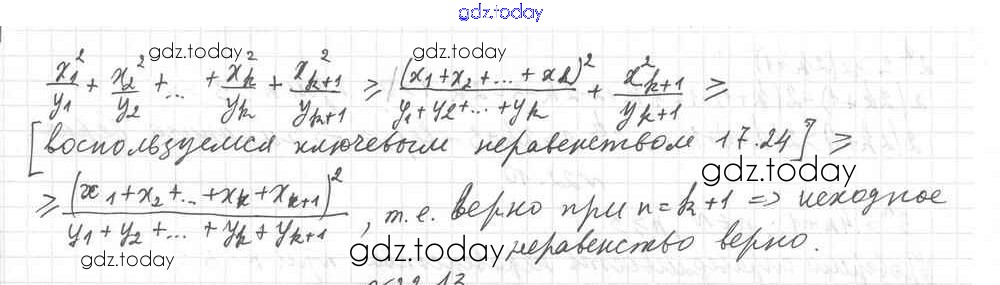 gdz.today
gdz.today gdz.today
x₁²/y₁ + x₂²/y₂ + ... + x_k²/y_k + x²_{k+1}/y_{k+1} ≥ (x₁+x₂+...+x_k)²/(y₁+y₂+...+y_k) + x²_{k+1}/y_{k+1} ≥
[воспользуемся ключевым неравенством 17.24] ≥
gdz.today
≥ (x₁+x₂+...+x_k+x_{k+1})²/(y₁+y₂+...+y_k+y_{k+1}), т.е. верно при n=k+1 => исходное
неравенство верно.
gdz.today gdz.today